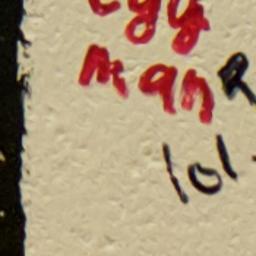 egg
man R
lol